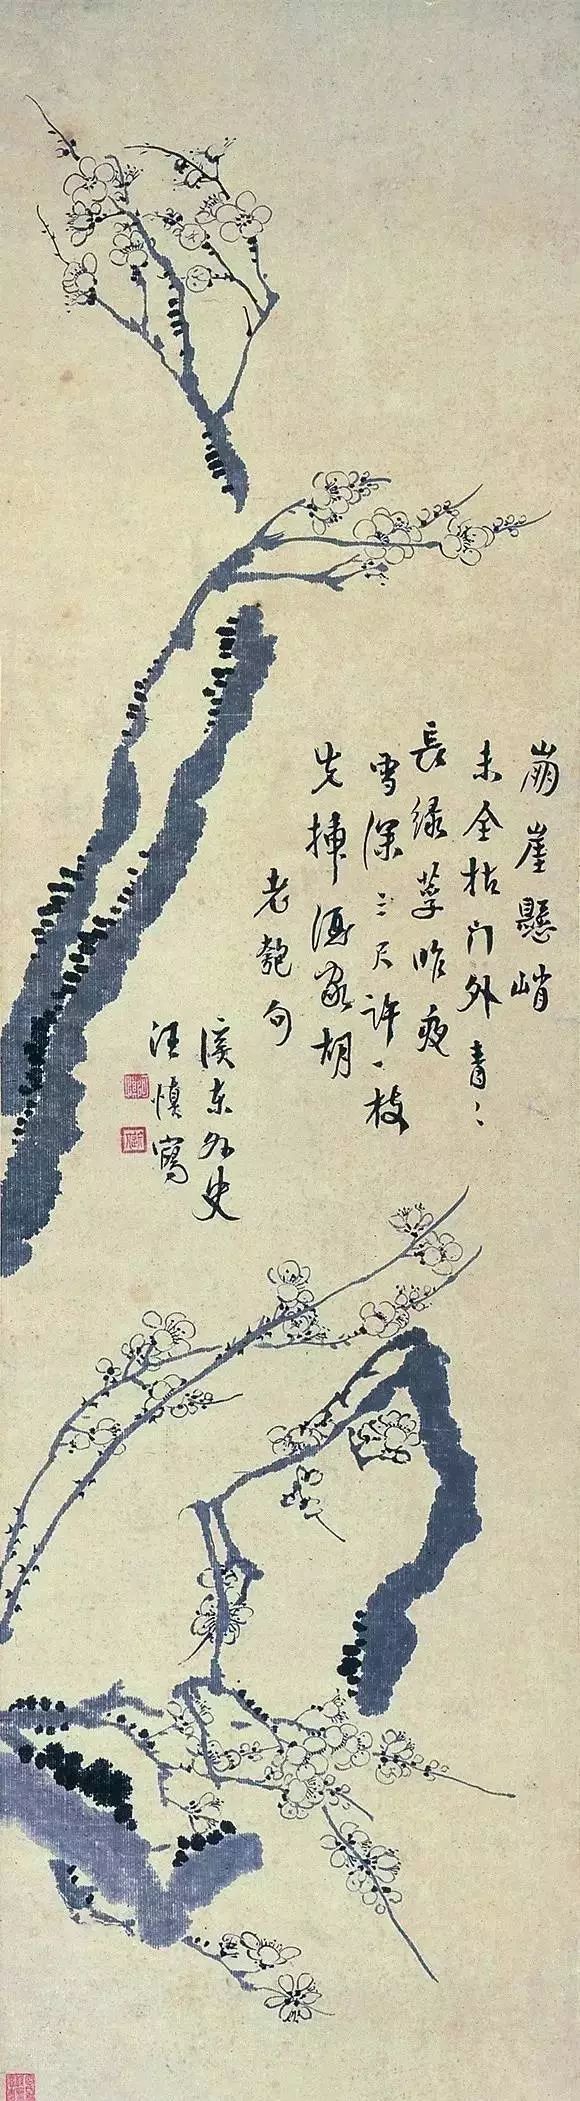 崩崖懸峭
未全枯门外青〻
長绿莩昨夜
雪深三尺许一枝
先挿酒家胡
老匏句
溪东外史
汪慎寫